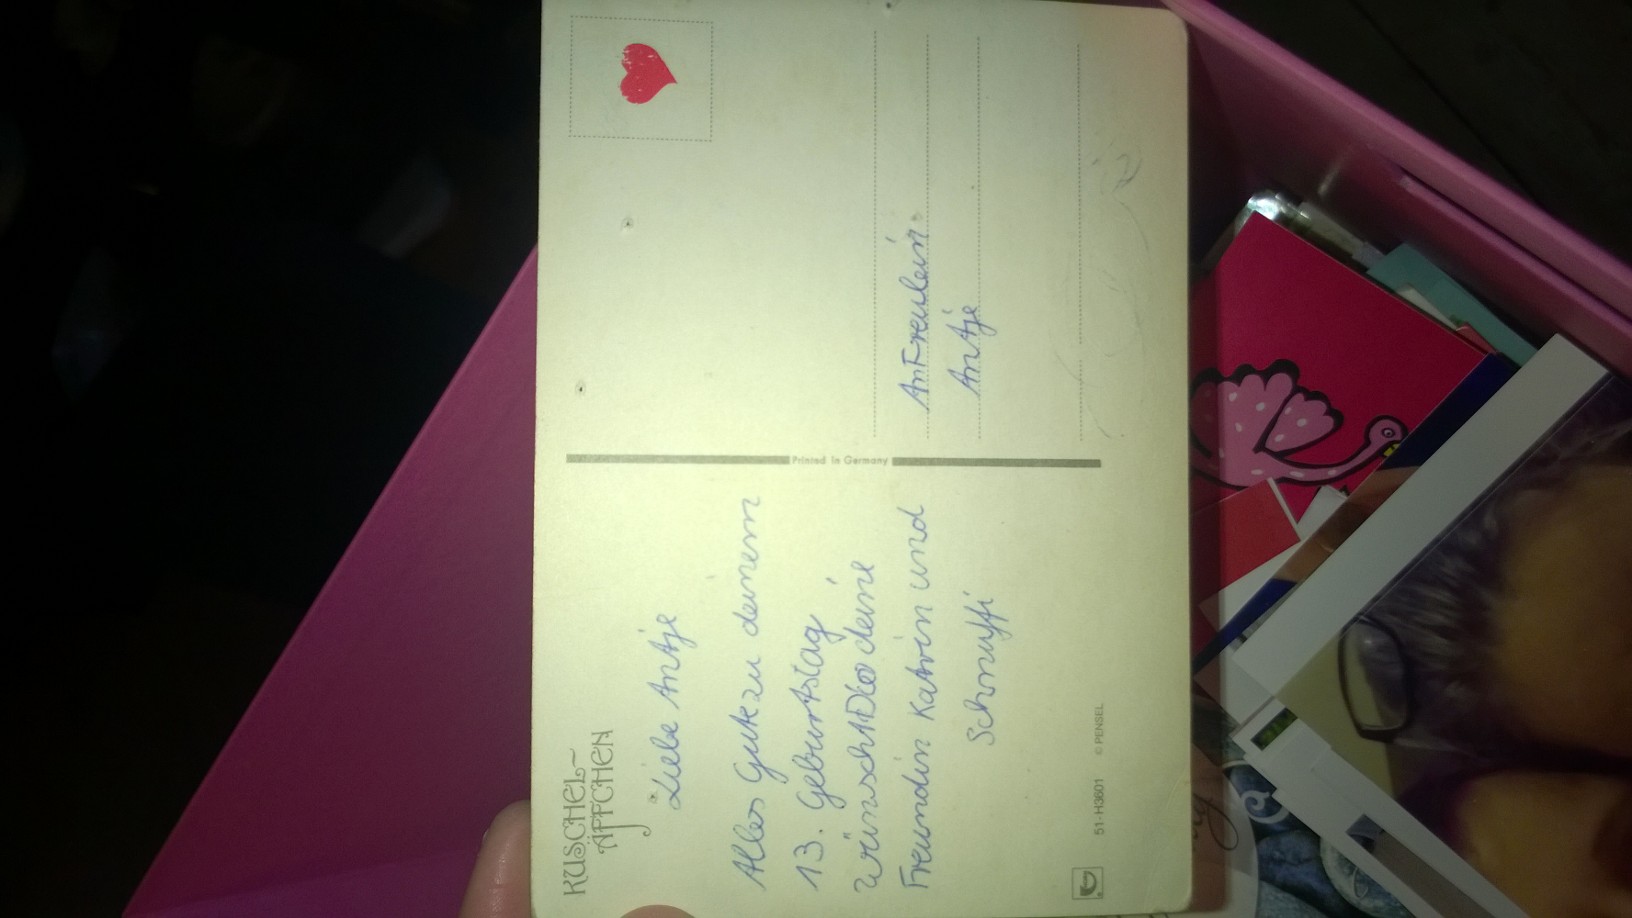 KUSCHEL-
ÄFFCHEN
Liebe Antje
Alles Gute zu deinem
13. Geburtstag
wünscht Dir deine
Freundin Katrin und
Schnuffi
51-H3601 © PENSEL
Printed in Germany
An Freulein
Antje